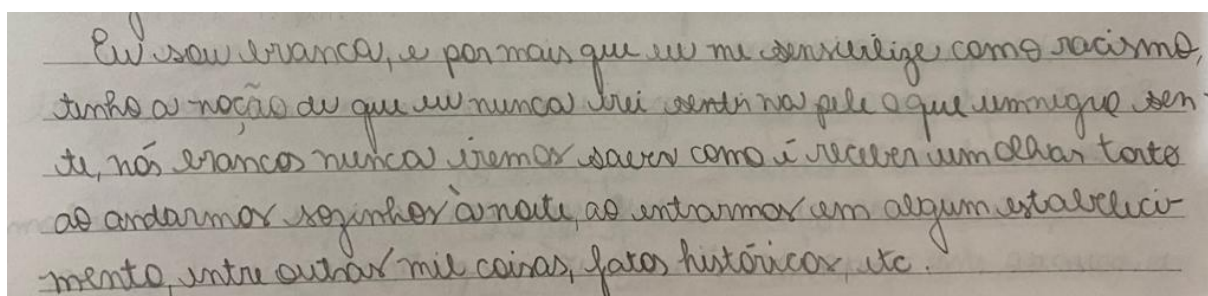 Eu sou branca, e por mais que eu me sensibilize com o racismo,
tenho a noção de que eu nunca irei sentir na pele o que um negro sen-
te, nós brancos nunca iremos saber como é receber um olhar torto
ao andarmos sozinhos à noite, ao entrarmos em algum estabeleci-
mento, entre outras mil coisas, fatos históricos, etc.